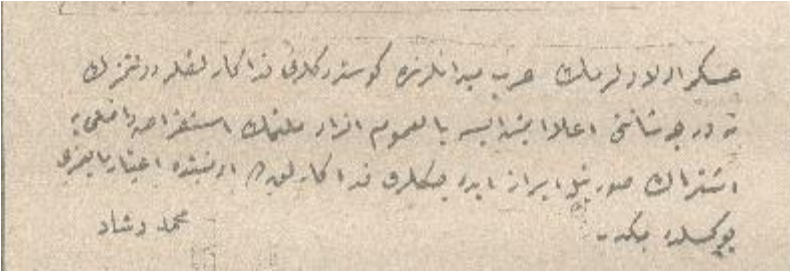 عسكر اولادلرمك حرب ميدانلرنده كوستردكلرى فداكارلقلر دولتمزك
نه درجه شاننى اعلا ايتدايسه بالعموم افراد ملتمك استقراض داخلى يه
اشتراك صورتيله ابراز ايده جكلرى فداكارلق ده او نسبتده اعتبار ماليمزى
يوكسلده جكدر
محمد رشاد